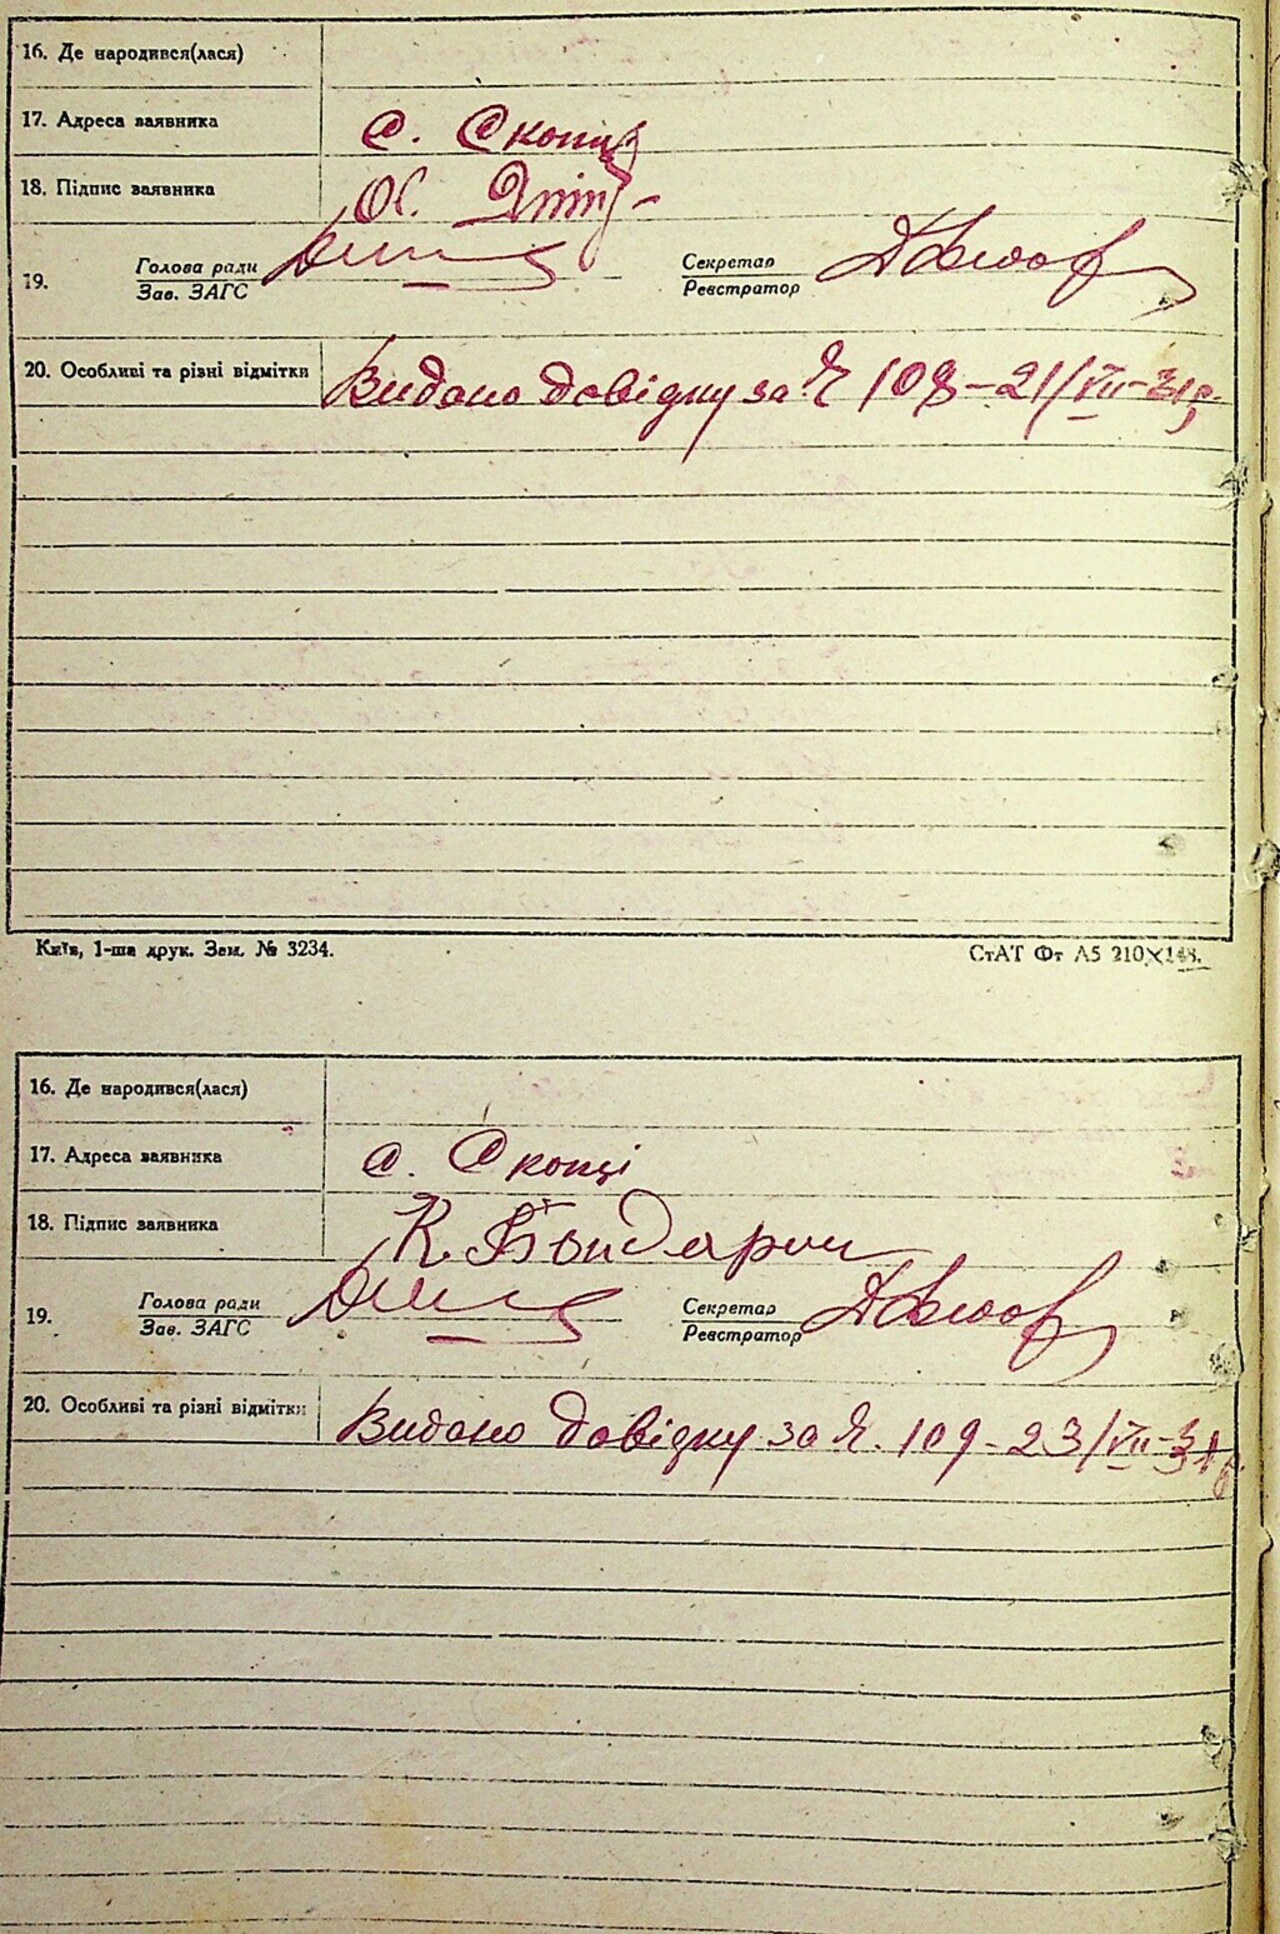 16. Де народився(лася)
17. Адреса заявника с. Скопці
18. Підпис заявника
19. Голова ради Секретар
Зав. ЗАГС Реєстратор
20. Особливі та різні відмітки Видано довідку за № 108 – 21/VII – 31р.
Київ, 1-ша друк. Зам. № 3234. СтАТ Фт А5 210×148.
16. Де народився(лася)
17. Адреса заявника с. Скопці
18. Підпис заявника К. Бондарчи
19. Голова ради Секретар
Зав. ЗАГС Реєстратор
20. Особливі та різні відмітки Видано довідку за №. 109 – 23/VII – 31р.